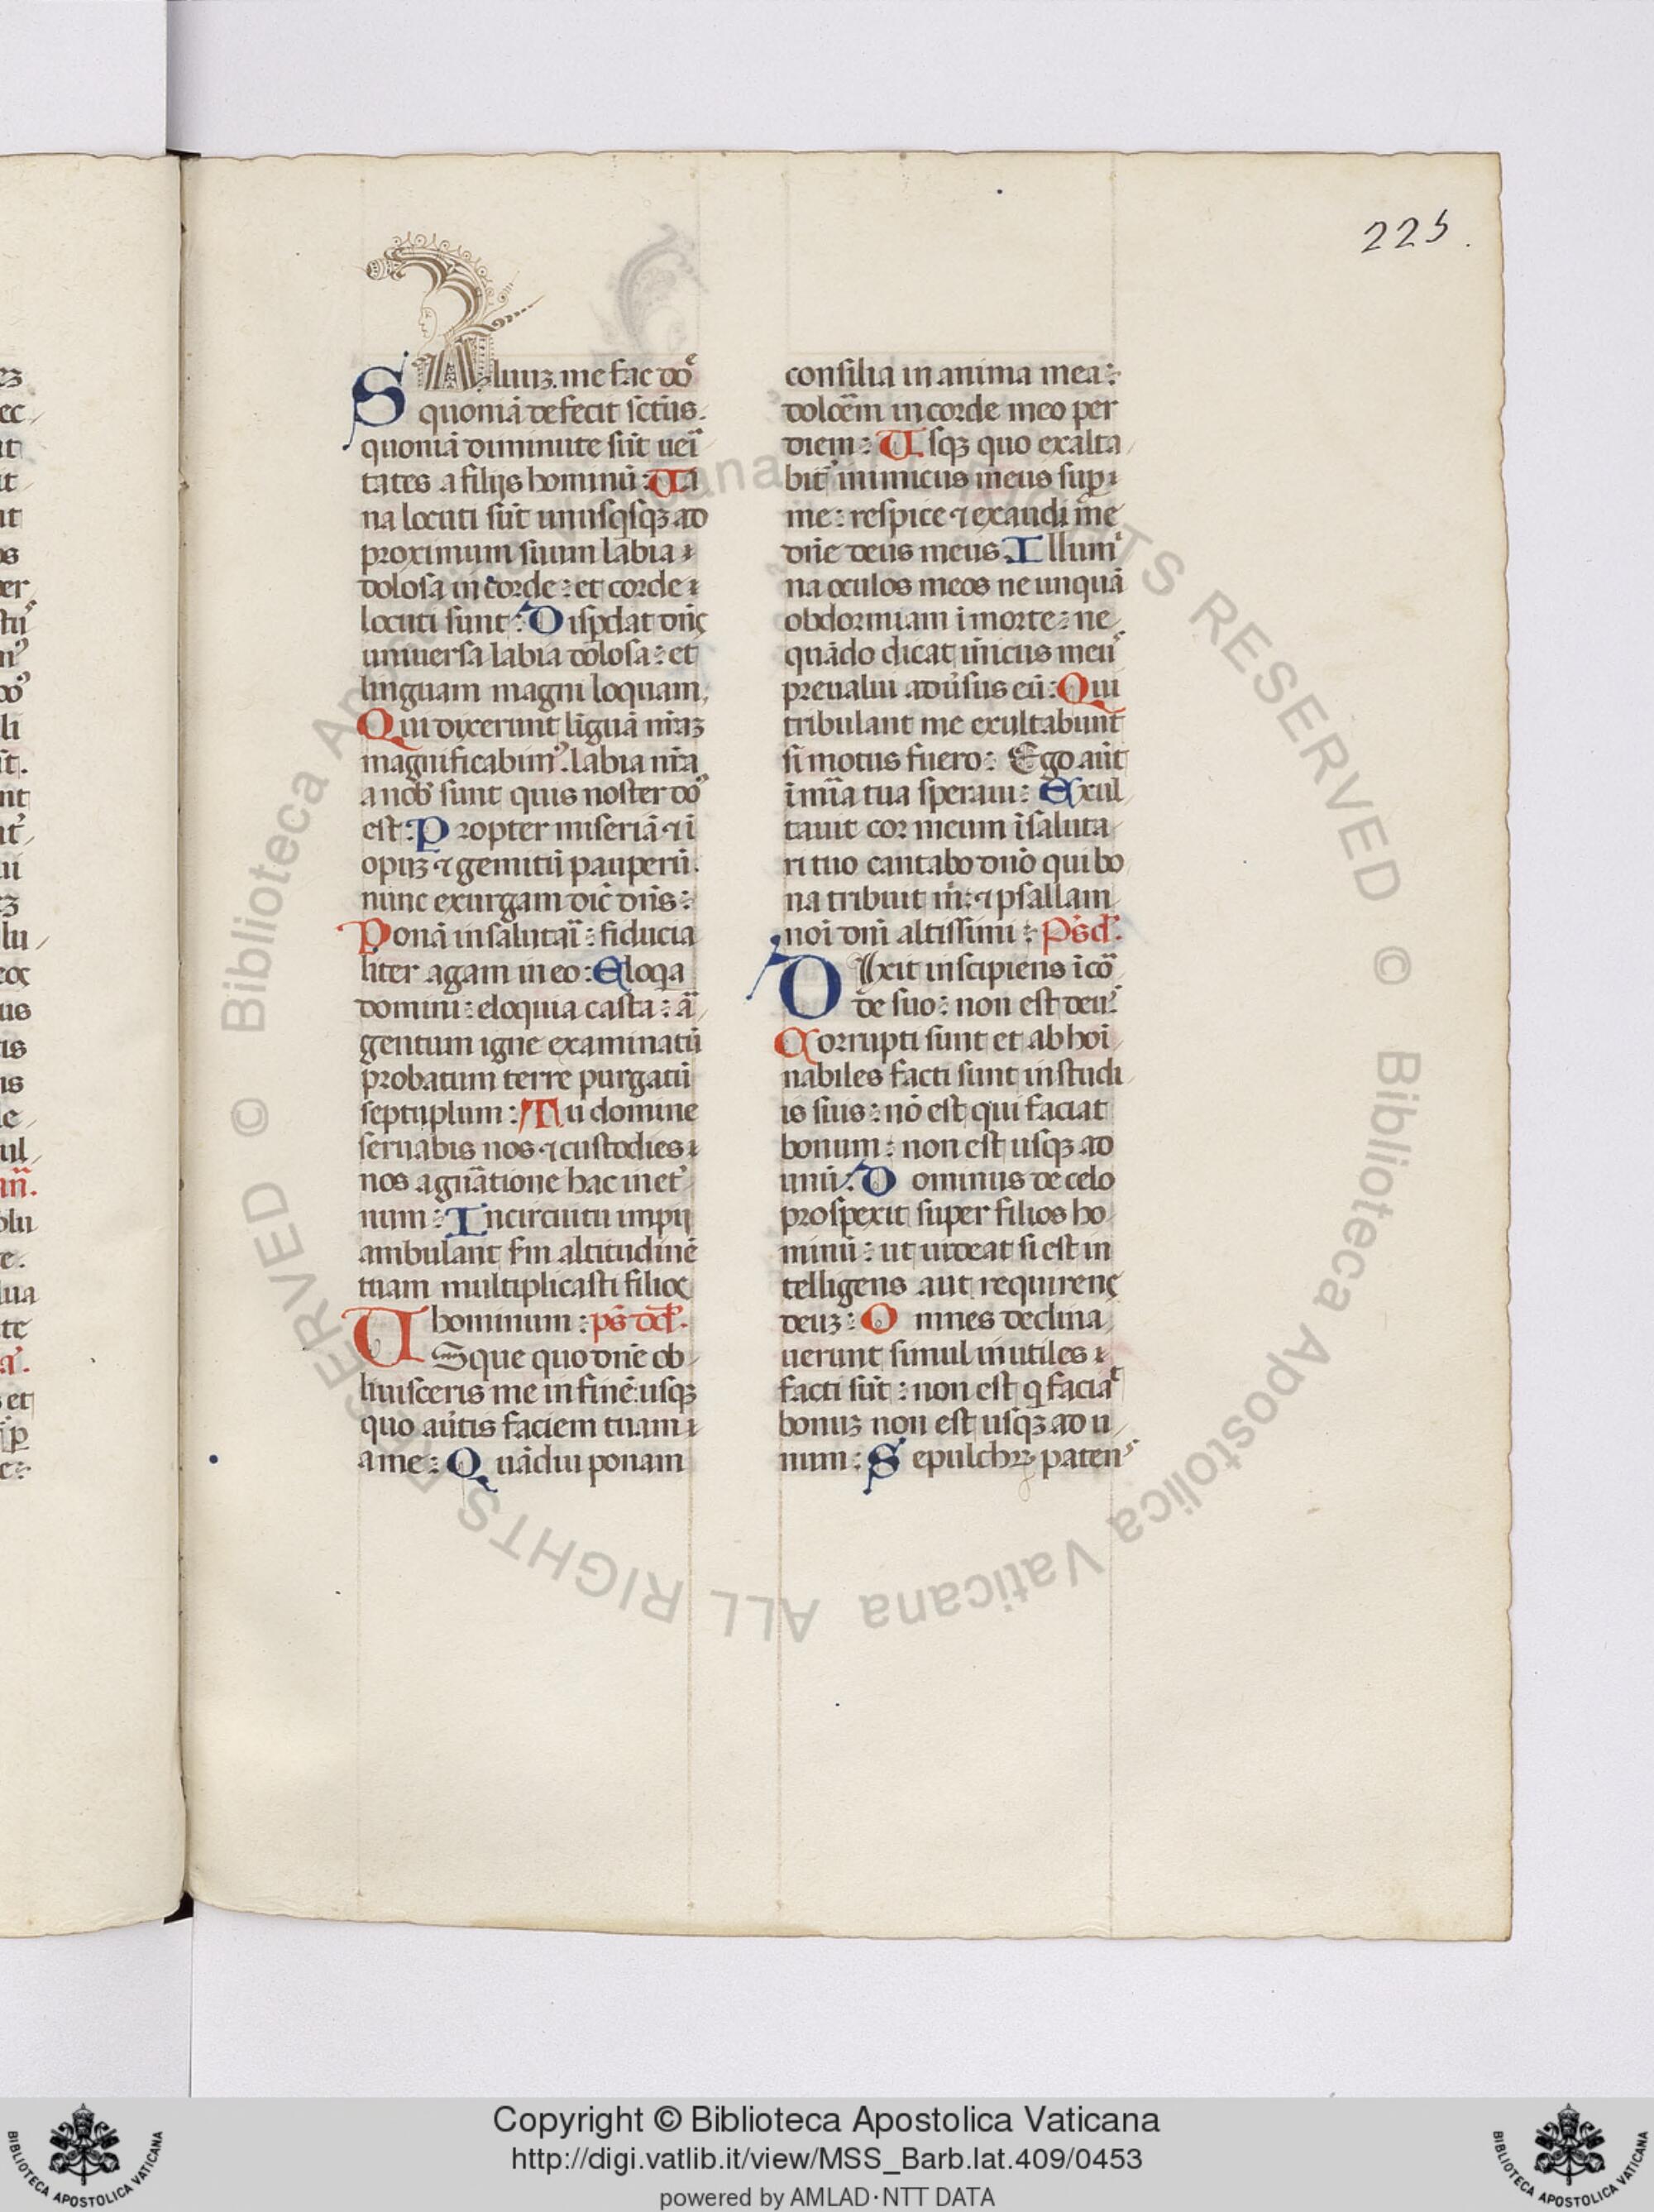 225.
SAluuꝫ me fac dō
quoniā defecit sctūs.
quoniā diminute sūt ueī
tates a filijs hominū: Ua
na locuti sūt unusqsqꝫ ad
proximum suum labia
dolosa in corde: et corde
locuti sunt: Disꝑdat dn̄s
uniuersa labia dolosa: et
linguam magni loquam,
Qui dixerunt liguā nr̄aꝫ
magnificabimꝰ. labia nr̄a
a nob̄ sunt quis noster dō
est: Propter miseriā ⁊ i
opiꝫ ⁊ gemitū pauperū.
nunc exurgam dic̄ dn̄s:
Ponā in salutaī: fiducia
liter agam in eo: Eloqa
domini: eloquia casta: ā
gentum igne examinatū
probatum terre purgatū
septuplum: Tu domine
seruabis nos ⁊ custodies
nos a gn̄atione hac in et̓
num: In circuitu impij
ambulant s̄m altitudinē
tuam multiplicasti filios
hominum: ps̄ dd̄.
USque quo dn̄e ob
liuisceris me in finē: usqꝫ
quo aūtis faciem tuam
a me: Quādiu ponam
consilia in anima mea:
dolo㝠in corde meo per
diem: Usqꝫ quo exalta
bit̄ inimicus meus suꝑ
me: respice ⁊ exaudi me
dn̄e deus meus Illumi
na oculos meos ne unquā
obdormiam ī morte: ne
quādo dicat īnicus meuˢ
preualui adūsus eū: Qui
tribulant me exultabunt
si motus fuero: Ego aūt
ī mīa tua speraui: Exul
tauit cor meum ī saluta
ri tuo cantabo dn̄o qui bo
na tribuit m̄: ⁊ psallam
noī dn̄i altissimi: Ps̄ d̄.
DIxit insipiens ī cor
de suo: non est deuˢ
Corrupti sunt et abhoī
nabiles facti sunt in studi
is suis: nō est qui faciat
bonum: non est usqꝫ ad
unū: Dominus de celo
prospexit super filios ho
minū: ut uideat si est in
telligens aut requirens
deuꝫ: Omnes declina
uerunt simul inutiles
facti sūt: non est q faciat
bonuꝫ non est usqꝫ ad u
num: Sepulchꝝ patenˢ
© Biblioteca Apostolica Vaticana ALL RIGHTS RESERVED © Biblioteca Apostolica Vaticana ALL RIGHTS RESERVED
Copyright © Biblioteca Apostolica Vaticana
http://digi.vatlib.it/view/MSS_Barb.lat.409/0453
powered by AMLAD·NTT DATA
BIBLIOTECA APOSTOLICA VATICANA
BIBLIOTECA APOSTOLICA VATICANA